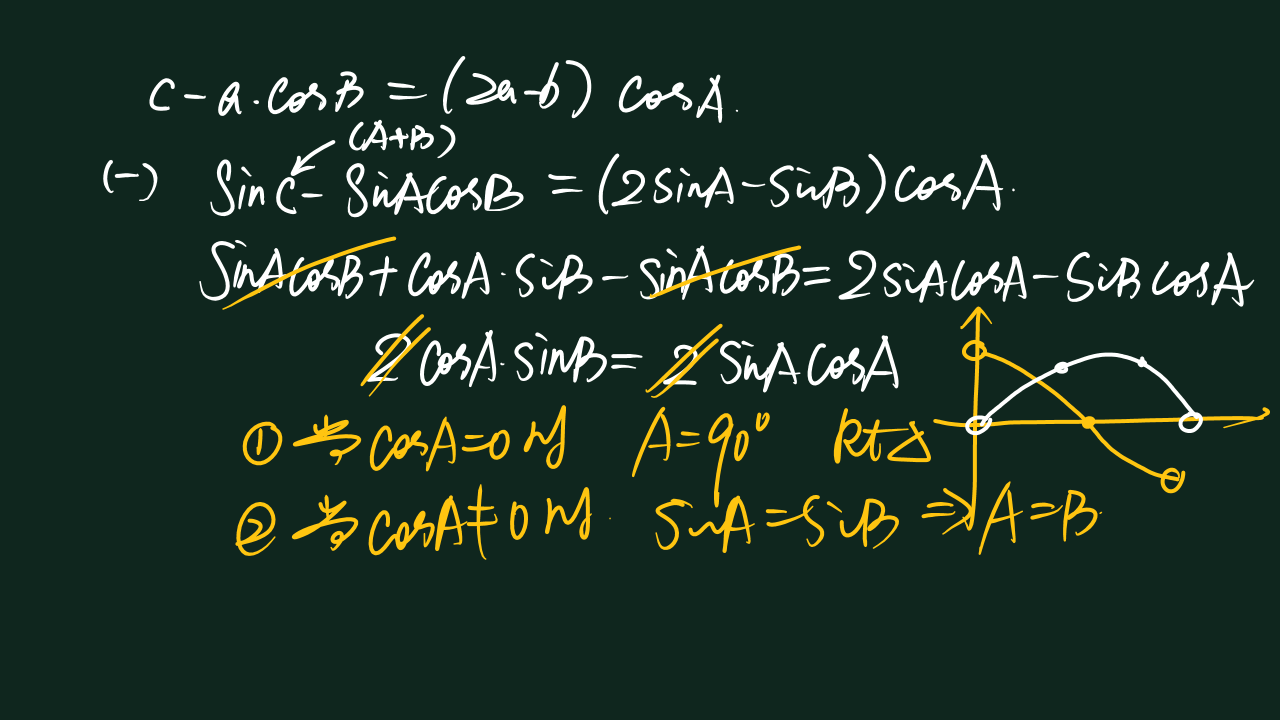 c-a·cosB=(2a-b) cosA.
(A+B)
(一) sinC-sinAcosB=(2sinA-sinB)cosA.
sinAcosB+cosA·sinB-sinAcosB=2sinAcosA-sinBcosA
2cosA·sinB=2sinAcosA
① 当cosA=0时 A=90° Rt△
② 当cosA≠0时. sinA=sinB ⇒ A=B